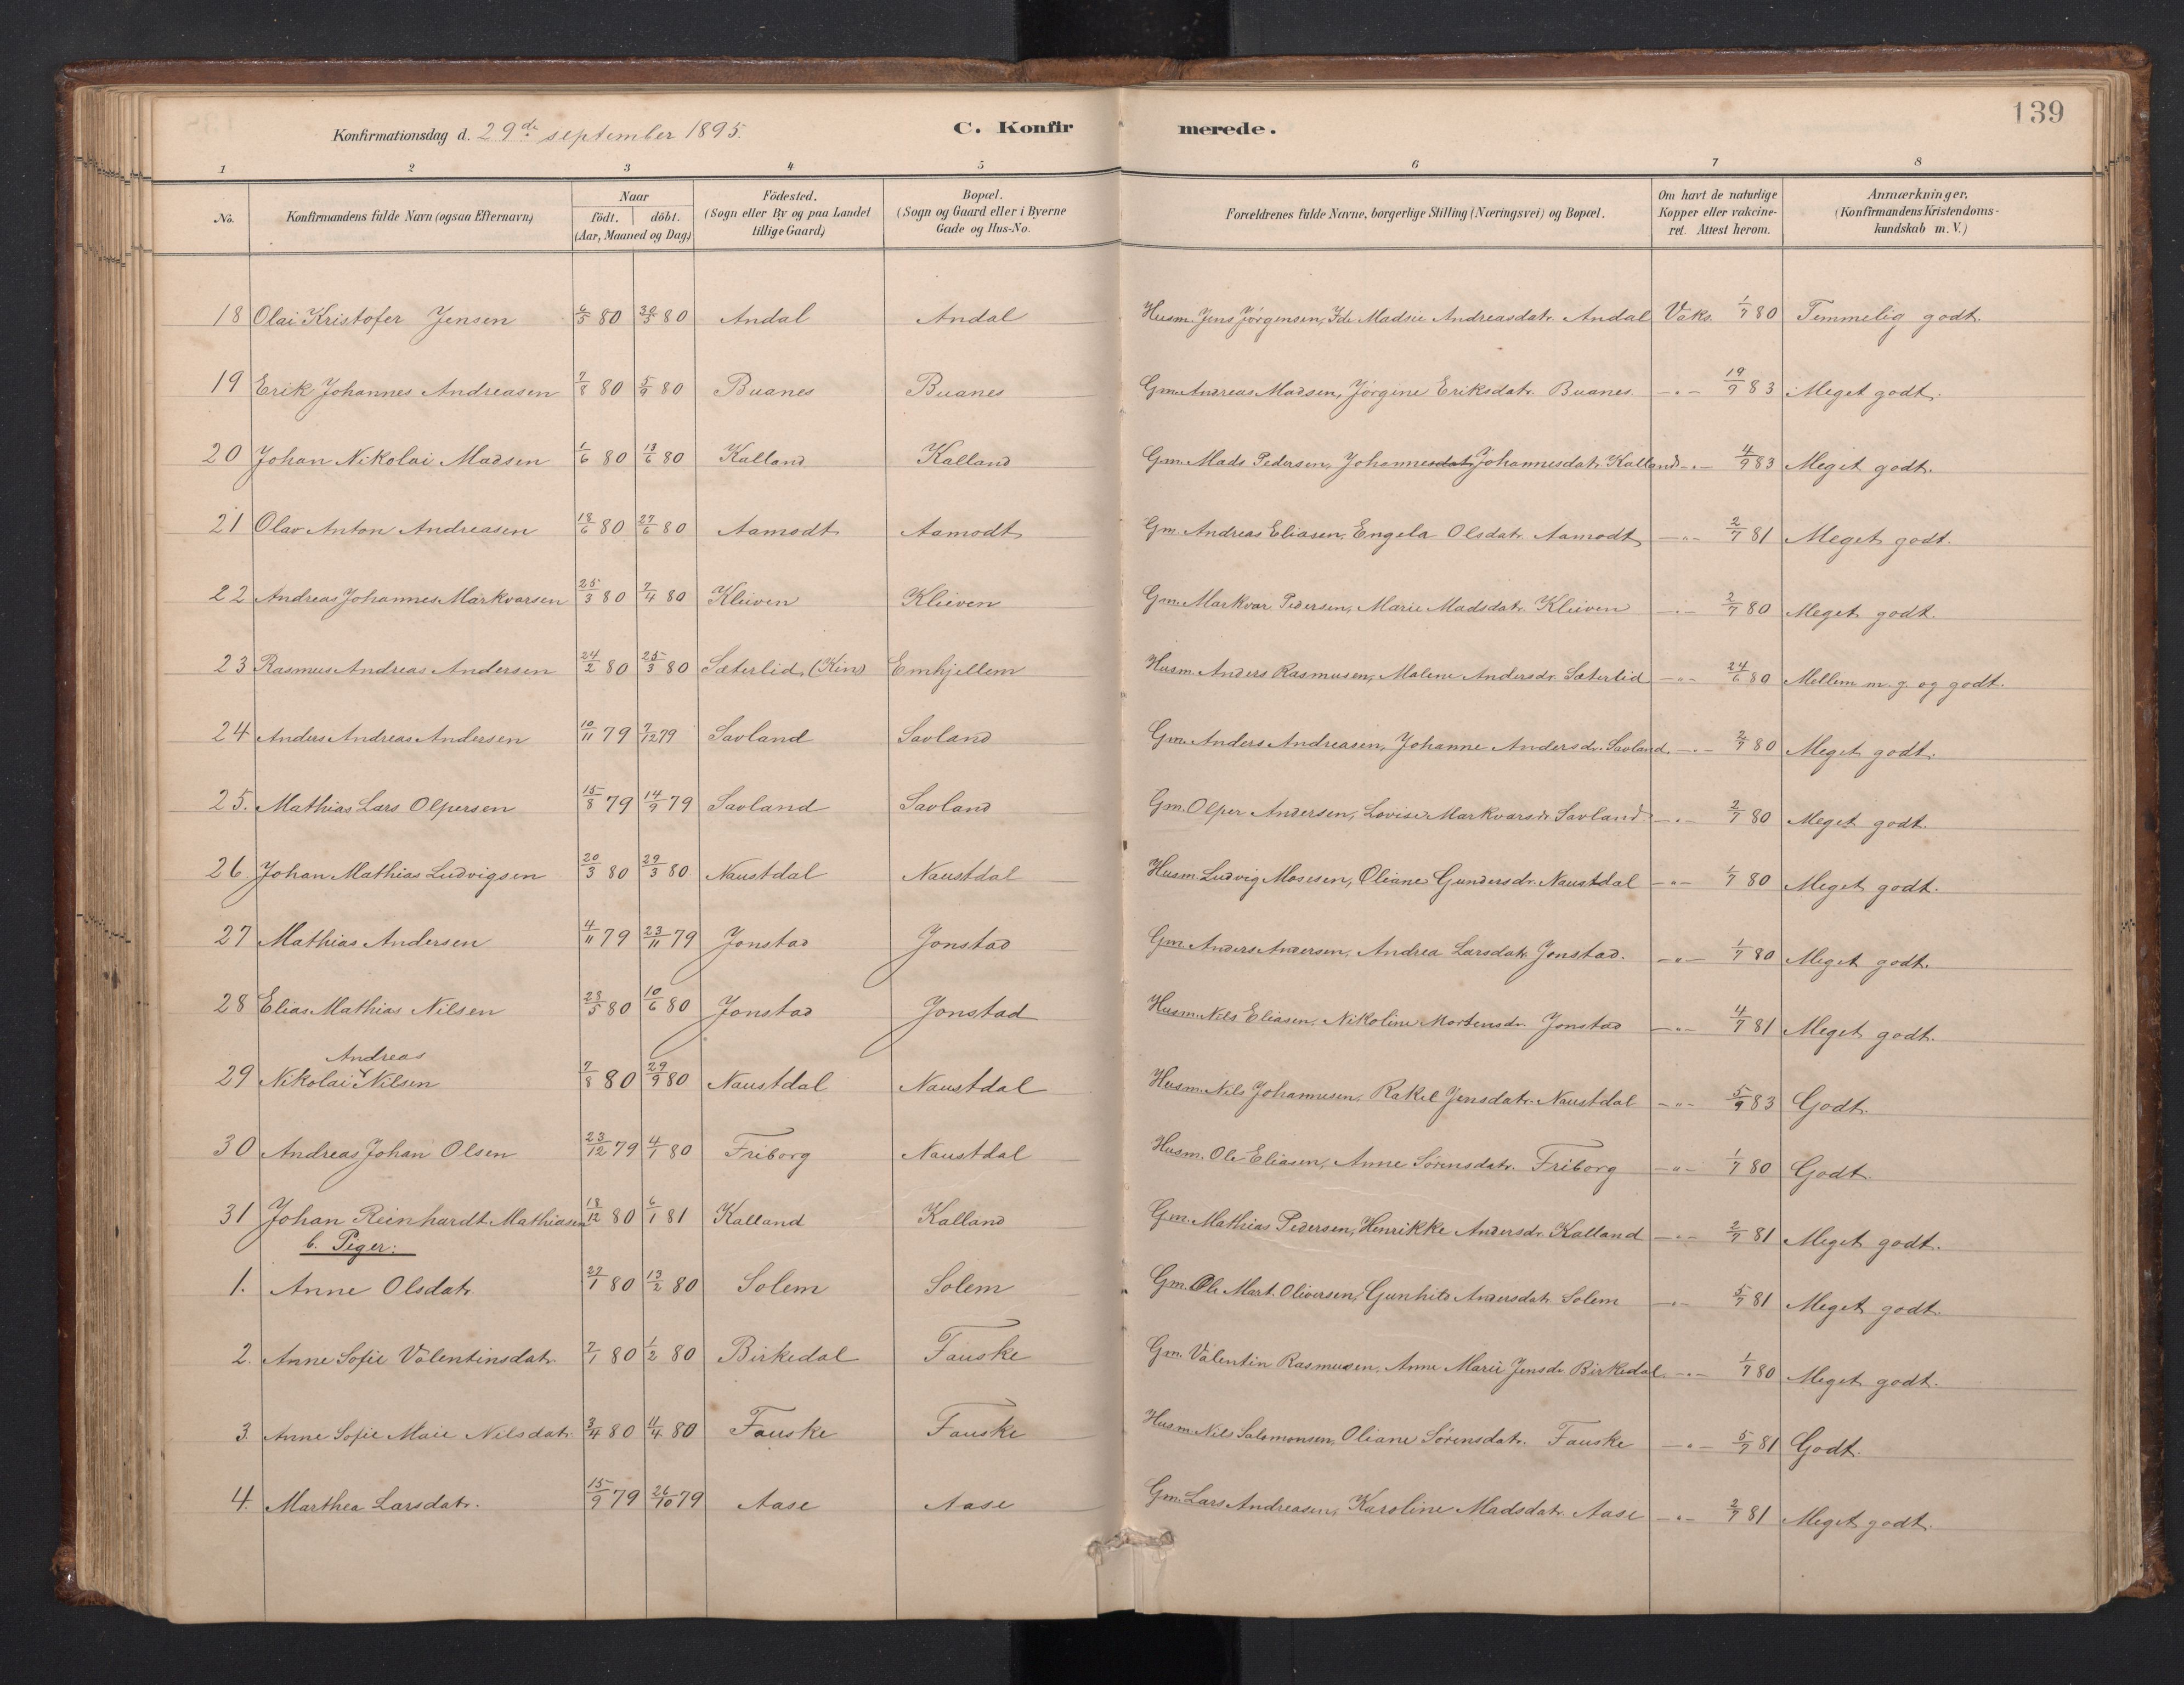 139
Konfirmationsdag d. 29de september 1895.
C. Konfirmerede.
1 2 3 4 5 6 7 8
No. | Konfirmandens fulde Navn (ogsaa Efternavn) | Naar födt. | döbt. (Aar, Maaned og Dag) | Födested. (Sogn eller By og paa Landet tillige Gaard) | Bopæl. (Sogn og Gaard eller i Byerne Gade og Hus-No. | Forældrenes fulde Navne, borgerlige Stilling (Næringsvei) og Bopæl. | Om havt de naturlige Kopper eller vakcineret. Attest herom. | Anmærkninger, (Konfirmandens Kristendomskundskab m. V.)
18 Olai Kristofer Jensen 6/5 80 30/5 80 Andal Andal Husm. Jens Jørgensen, Ide Madsie Andreasdatr. Andal Vaks. 1/7 80 Temmelig godt.
19 Erik Johannes Andreasen 7/8 80 5/9 80 Buanes Buanes Gm. Andreas Madsen, Jørgine Eriksdatr. Buanes. -"- 19/9 83 Meget godt.
20 Johan Nikolai Madsen 1/6 80 13/6 80 Kalland Kalland Gm. Mads Pedersen, Johannesdatr Johannesdatr. Kalland -"- 4/9 83 Meget godt.
21 Olav Anton Andreasen 18/6 80 27/6 80 Aamodt Aamodt Gm. Andreas Eliasen, Engela Olsdatr. Aamodt -"- 2/7 81 Meget godt.
22 Andreas Johannes Markvarsen 25/3 80 7/4 80 Kleiven Kleiven Gm. Markvar Pedersen, Marie Madsdatr. Kleiven -"- 2/7 80 Meget godt.
23 Rasmus Andreas Andersen 24/2 80 25/3 80 Sæterlid (Kinn) Emhjellem Husm. Anders Rasmusen, Malene Andersdr. Sæterlid -"- 24/6 80 Mellem m. g. og godt.
24 Anders Andreas Andersen 10/11 79 7/12 79 Savland Savland Gm. Anders Andreasen, Johanne Andersdr. Savland. -"- 2/7 80 Meget godt.
25. Mathias Lars Olpersen 15/8 79 14/9 79 Savland Savland Gm. Olper Andersen, Lovise Markvarsdr. Savland -"- 2/7 80 Meget godt.
26. Johan Mathias Ludvigsen 20/3 80 29/3 80 Naustdal Naustdal Husm. Ludvig Mosesen, Oliane Gundersdr. Naustdal -"- 1/7 80 Meget godt.
27 Mathias Andersen 4/11 79 23/11 79 Jonstad Jonstad Gm. Anders Andersen, Andrea Larsdatr. Jonstad. -"- 1/7 80 Meget godt.
28 Elias Mathias Nilsen 28/5 80 10/6 80 Jonstad Jonstad Husm. Nils Eliasen, Nikoline Mortensdr. Jonstad -"- 4/7 81 Meget godt.
Andreas
29 Nikolai Nilsen 7/8 80 29/9 80 Naustdal Naustdal Husm. Nils Johannesen, Rakel Jensdatr. Naustdal -"- 5/9 83 Godt.
30 Andreas Johan Olsen 23/12 79 4/1 80 Friborg Naustdal Husm. Ole Eliasen, Anne Sørensdatr. Friborg -"- 1/7 80 Godt.
31 Johan Reinhardt Mathiasen 18/12 80 6/1 81 Kalland Kalland Gm. Mathias Pedersen, Henrikke Andersdr. Kalland -"- 2/7 81 Meget godt.
b. Piger:
1. Anne Olsdatr. 27/1 80 13/2 80 Solem Solem Gm. Ole Mart. Oliversen, Gunhild Andersdatr. Solem -"- 5/7 81 Meget godt.
2. Anne Sofie Valentinsdatr. 2/1 80 1/2 80 Birkedal Fauske Gm. Valentin Rasmusen, Anne Marie Jensdr. Birkedal. -"- 1/7 80 Meget godt.
3. Anne Sofie Maie Nilsdatr. 3/4 80 11/4 80 Fauske Fauske Husm. Nils Salomonsen, Oliane Sørensdatr. Fauske -"- 5/7 81 Godt.
4. Marthea Larsdatr. 15/9 79 26/10 79 Aase Aase Gm. Lars Andreasen, Karoline Madsdatr. Aase -"- 2/7 81 Meget godt.